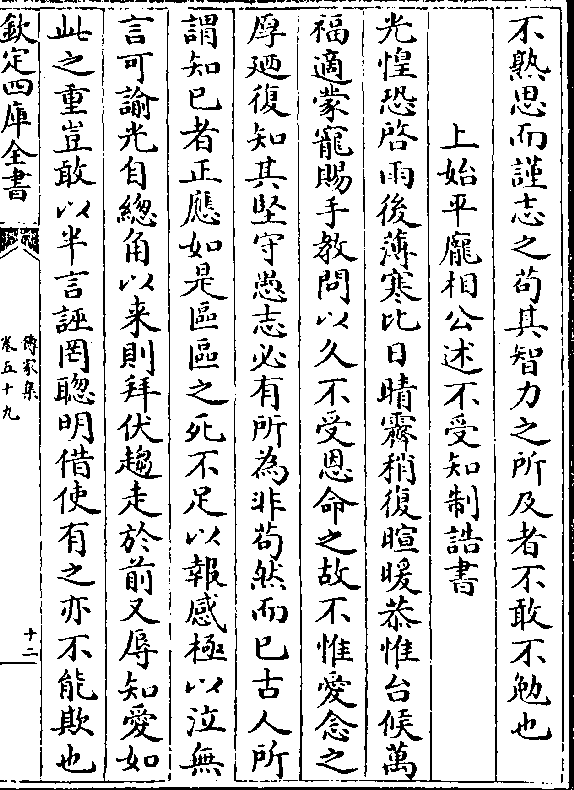 不熟思而謹志之苟其智力之所及者不敢不勉也
上始平龐相公述不受知制誥書
光惶恐啓雨後薄寒比日晴霽稍復暄暖恭惟台候萬
福適蒙寵賜手教問以久不受恩命之故不惟愛念之
厚廼復知其堅守愚志必有所為非苟然而已古人所
謂知已者正應如是區區之死不足以報感極以泣無
言可諭光自總角以来則拜伏趨走於前又辱知愛如
此之重豈敢以半言誣罔聰明借使有之亦不能欺也
欽定四庫全書
傳家集
卷五十九
十二